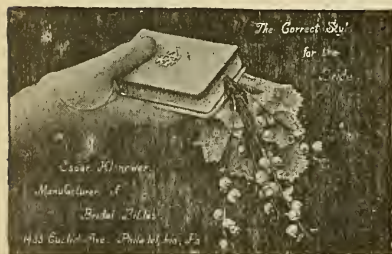 The Correct Style
for the
Bride
Manufacturer of
Bridal Bibles
Euclid Ave. Philadelphia, Pa